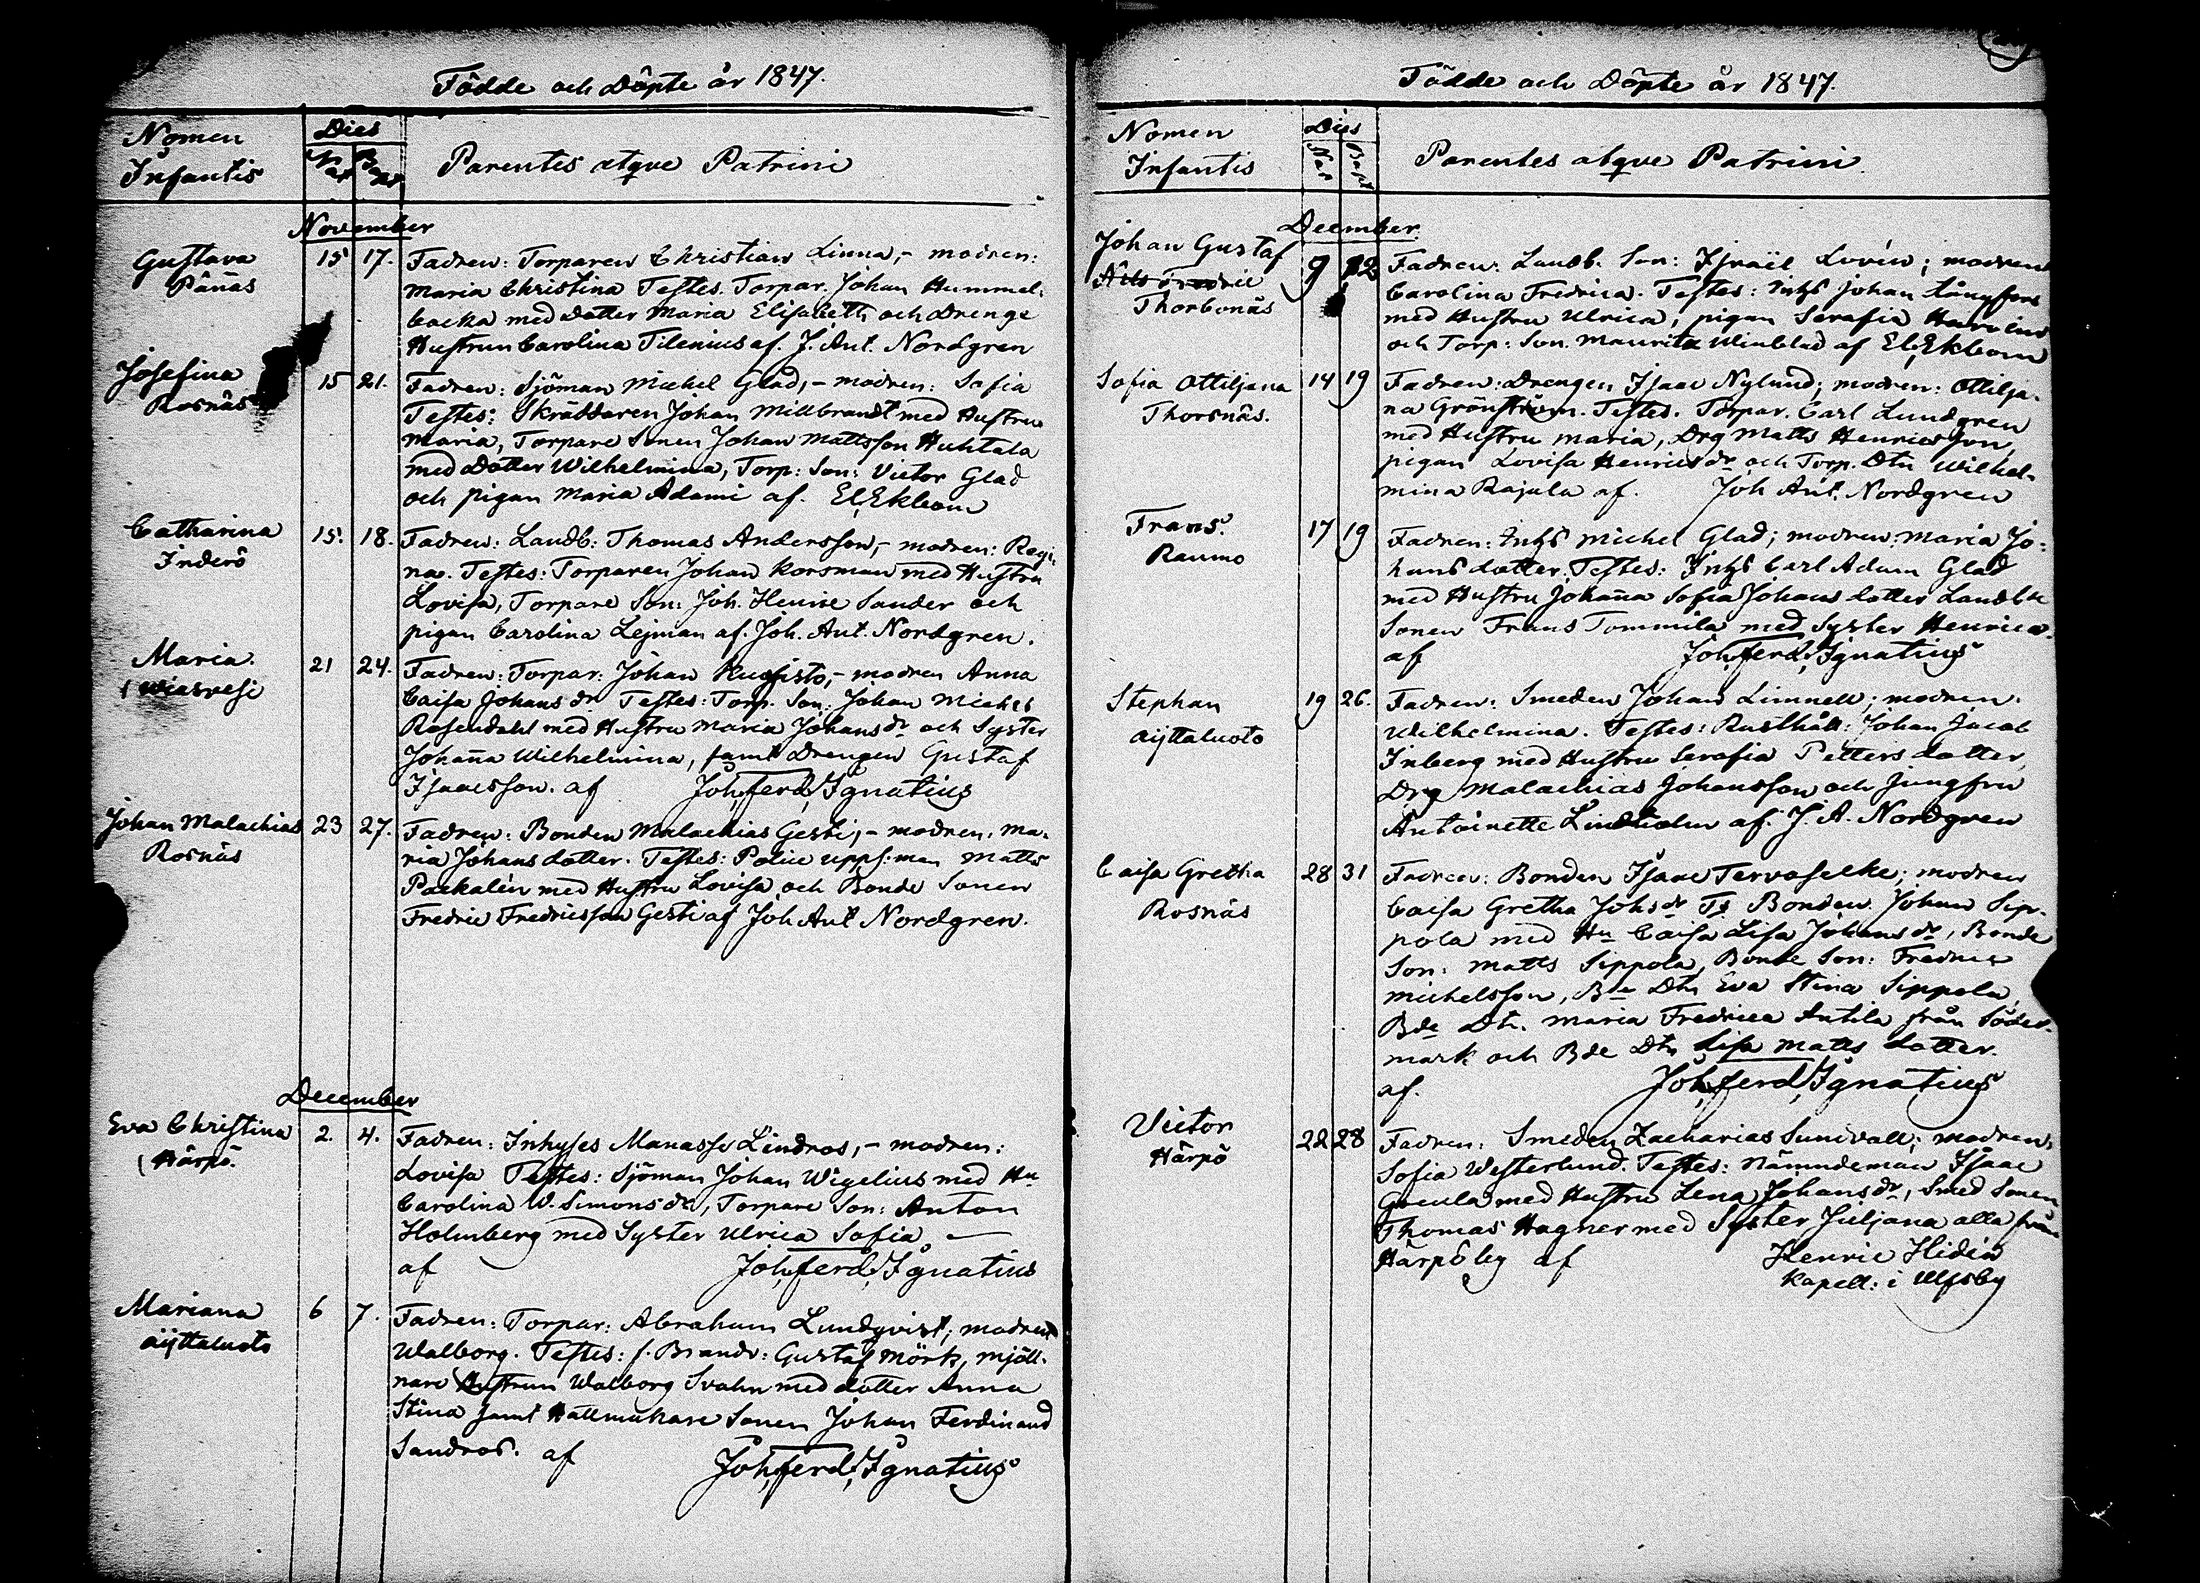 Födde och Döpte år 1847.
Nomen
Infantis
Dies
Nat
Bapt
Parentes atqve Patrini
November
Gustava
Pånnäs
15
17.
Fadren: Torparen Christian Linna,- modren:
Maria Christina Testes. Torpar. Johan Hummel-
backa med dotter Maria Elisabeth och Drenge
Hustrun Carolina Tilenius af. J. Ant. Nordgren
Josefina
Rosnäs
15
21.
Fadren: Sjöman Michel Glad,- modren: Sofia
Testes: Skräddaren Johan Millbrandt med Hustru
Maria, Torpare Sonen Johan Mattsson Huhtala
med dotter Wilhelmina, Torp: Son: Victor Glad
och pigan Maria Adami af. El. Ekbom
Catharina
Inderö
15.
18.
Fadren: Landb: Thomas Andersson,- modren: Regi-
na. Testes: Torparen Johan Korsman med Hustru
Lovisa, Torpare Son: Joh. Henric Sander och
pigan Carolina Lejman af. Joh. Ant. Nordgren.
Maria.
Wiasvesi
21
24.
Fadren: Torpar: Johan Kuusisto,- modren Anna
Caisa Johansdr Testes: Torp. Son: Johan Michel
Rosendahl med Hustru Maria Johansdr och Syster
Johanna Wilhelmina, samt Drengen Gustaf
Isaacsson. af Joh. Ferd. Ignatius
Johan Malachias
Rosnäs
23
27.
Fadren: Bonden Malachias Gesti,- modren, Ma-
ria Johansdotter. Testes: Police upps:man Matts
Packalén med Hustru Lovisa och Bonde Sonen
Fredric Fredricsson Gesti af Joh Ant Nordgren.
December
Eva Christina
Härpö.
2.
4.
Fadren: Inhyses Manasse Lindros,- modren:
Lovisa Testes: Sjöman Johan Wigelius med Hu
Carolina W. Simonsdr, Torpare Son: Anton
Holmberg med Syster Ulrica Sofia
af Joh. Ferd. Ignatius
Mariana
Aijttaluoto
6
7.
Fadren: Torpar: Abraham Lundqvist; modren
Walborg. Testes: f. Brandv: Gustaf Mörk, mjöll-
nare Hustrun Walborg Svahn med dotter Anna
Stina samt Hattmakare Sonen Johan Ferdinand
Sandros. af Joh. Ferd. Ignatius
Födde och Döpte år 1847.
Nomen
Infantis
Dies
Nat
Bapt
Parentes atqve Patrini.
December
Johan Gustaf
Nils Fredric
Thorbonäs
9
12
Fadren: Landb. Son: Israël Lovén; modren
Carolina Fredrica. Testes: Inhs Johan Långfors
med Hustru Ulrica, pigan Serafia
och Torp: Son. Mauritz Winblad af El. Ekbom
Sofia Ottiljana
Thorsnäs.
14
19
Fadren: Drengen Isaac Nylund; modren: Ottilja-
na Grönström. Testes. Torpar. Carl Lundgren
med Hustru Maria, Drg Matts Henricsson,
pigan Lovisa Henricsdr och Torp. Dtr Wilhel-
mina Rajula af. Joh Ant. Nordgren
Frans.
Raumo
17
19
Fadren: Inhs Michel Glad; modren: Maria Jo-
hansdotter. Testes: Inhs Carl Adam Glad
med Hustru Johanna Sofia Johans dotter Landb
Sonen Frans Tommila med Syster Henrica.
af Joh. Ferd. Ignatius
Stephan
Aijttaluoto
19
26.
Fadren: Smeden Johan Limnell; modren.
Wilhelmina. Testes: Rusthåll: Johan Jacob
Inberg med Hustru Serafia Petters dotter,
Drg Malachias Johansson och Jungfru
Antoinette Lindholm af. J. A. Nordgren
Caisa Gretha
Rosnäs
28
31
Fadren: Bonden Isaac Tervaselke; modren
Caisa Gretha Johsdr Ts Bonden. Johan Sip-
pola med Hu Caisa Lisa Johansdr, Bonde
Son: Matts Sippola, Bonde Son: Fredric
Michelsson, Bde Dtr Eva Stina Sippola,
Bde Dtr. Maria Fredrica Antila från Söder-
mark och Bde Dtr Lisa Matts dotter.
af. Joh. Ferd. Ignatius
Victor
Härpö
22
28
Fadren: Smeden Zacharias Sundvall; modren:
Sofia Westerlund. Testes: Nämndeman Isaac
Greula med Hustru Lena Johansdr, Smed Sonen
Thomas Hagner med Syster Juljana alla från
Härpö by af Henric Hidén
Kapell: i Ulfsby